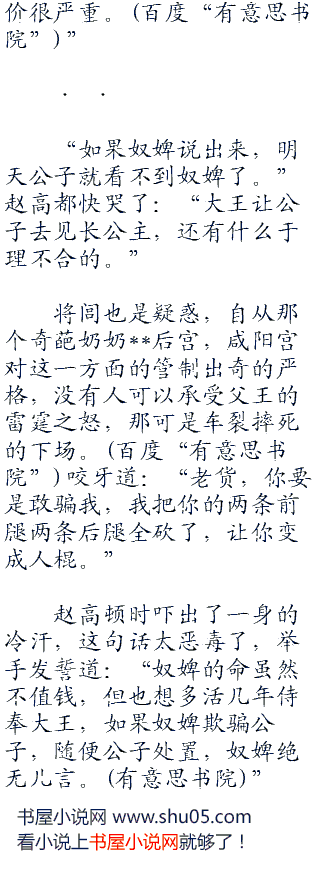 价很严重。(百度“有意思书
院”)”
· ·
“如果奴婢说出来，明
天公子就看不到奴婢了。”
赵高都快哭了：“大王让公
子去见长公主，还有什么于
理不合的。”
将闾也是疑惑，自从那
个奇葩奶奶**后宫，咸阳宫
对这一方面的管制出奇的严
格，没有人可以承受父王的
雷霆之怒，那可是车裂摔死
的下场。(百度“有意思书
院”)咬牙道：“老货，你要
是敢骗我，我把你的两条前
腿两条后腿全砍了，让你变
成人棍。”
赵高顿时吓出了一身的
冷汗，这句话太恶毒了，举
手发誓道：“奴婢的命虽然
不值钱，但也想多活几年侍
奉大王，如果奴婢欺骗公
子，随便公子处置，奴婢绝
无儿言。(有意思书院)”
书屋小说网 www.shu05.com
看小说上书屋小说网就够了！